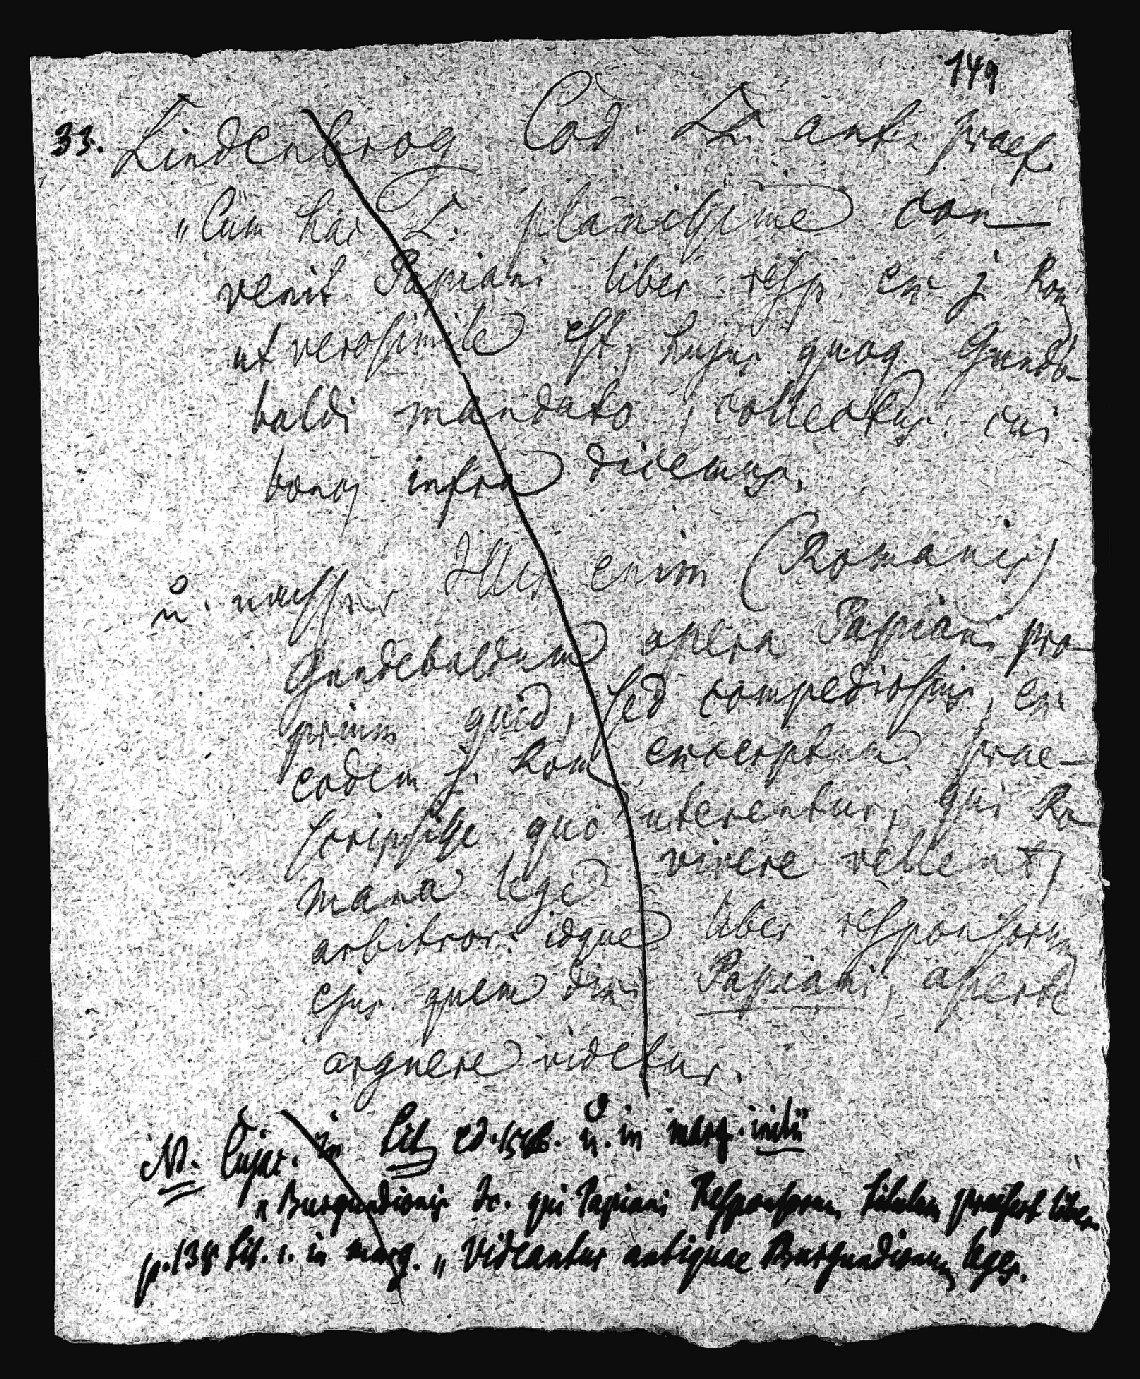 149
33. Lindenbrog Cod. LL. ant. praef.
„Cum hac L. plan con-
venit Papiani liber resp. ex j. Rom
ut verosimile est, hujus quoq Gundo-
baldi mandato, collectus. cui
bonoq infra dicemus.
u. nachher Illis enim (Romanis)
Gundebaldum opera Papiani pro-
prium quid, sed compediosius, ex
eodem j. Rom excerptum prae-
scripsisse quo uterentur, qui Ro-
mana lege vivere vellent,
arbitror: idque liber responsorum
ejus quem Papiani, aperte
arguere videtur.
NB. Cujac. in ed. 1566. u. in marg. initii
„Burgundionis &c. qui Papiani Responsorum titulum praefert liber
p. 138 tit. 1. in marg. „Videantur antiquae Burgundionum leges.